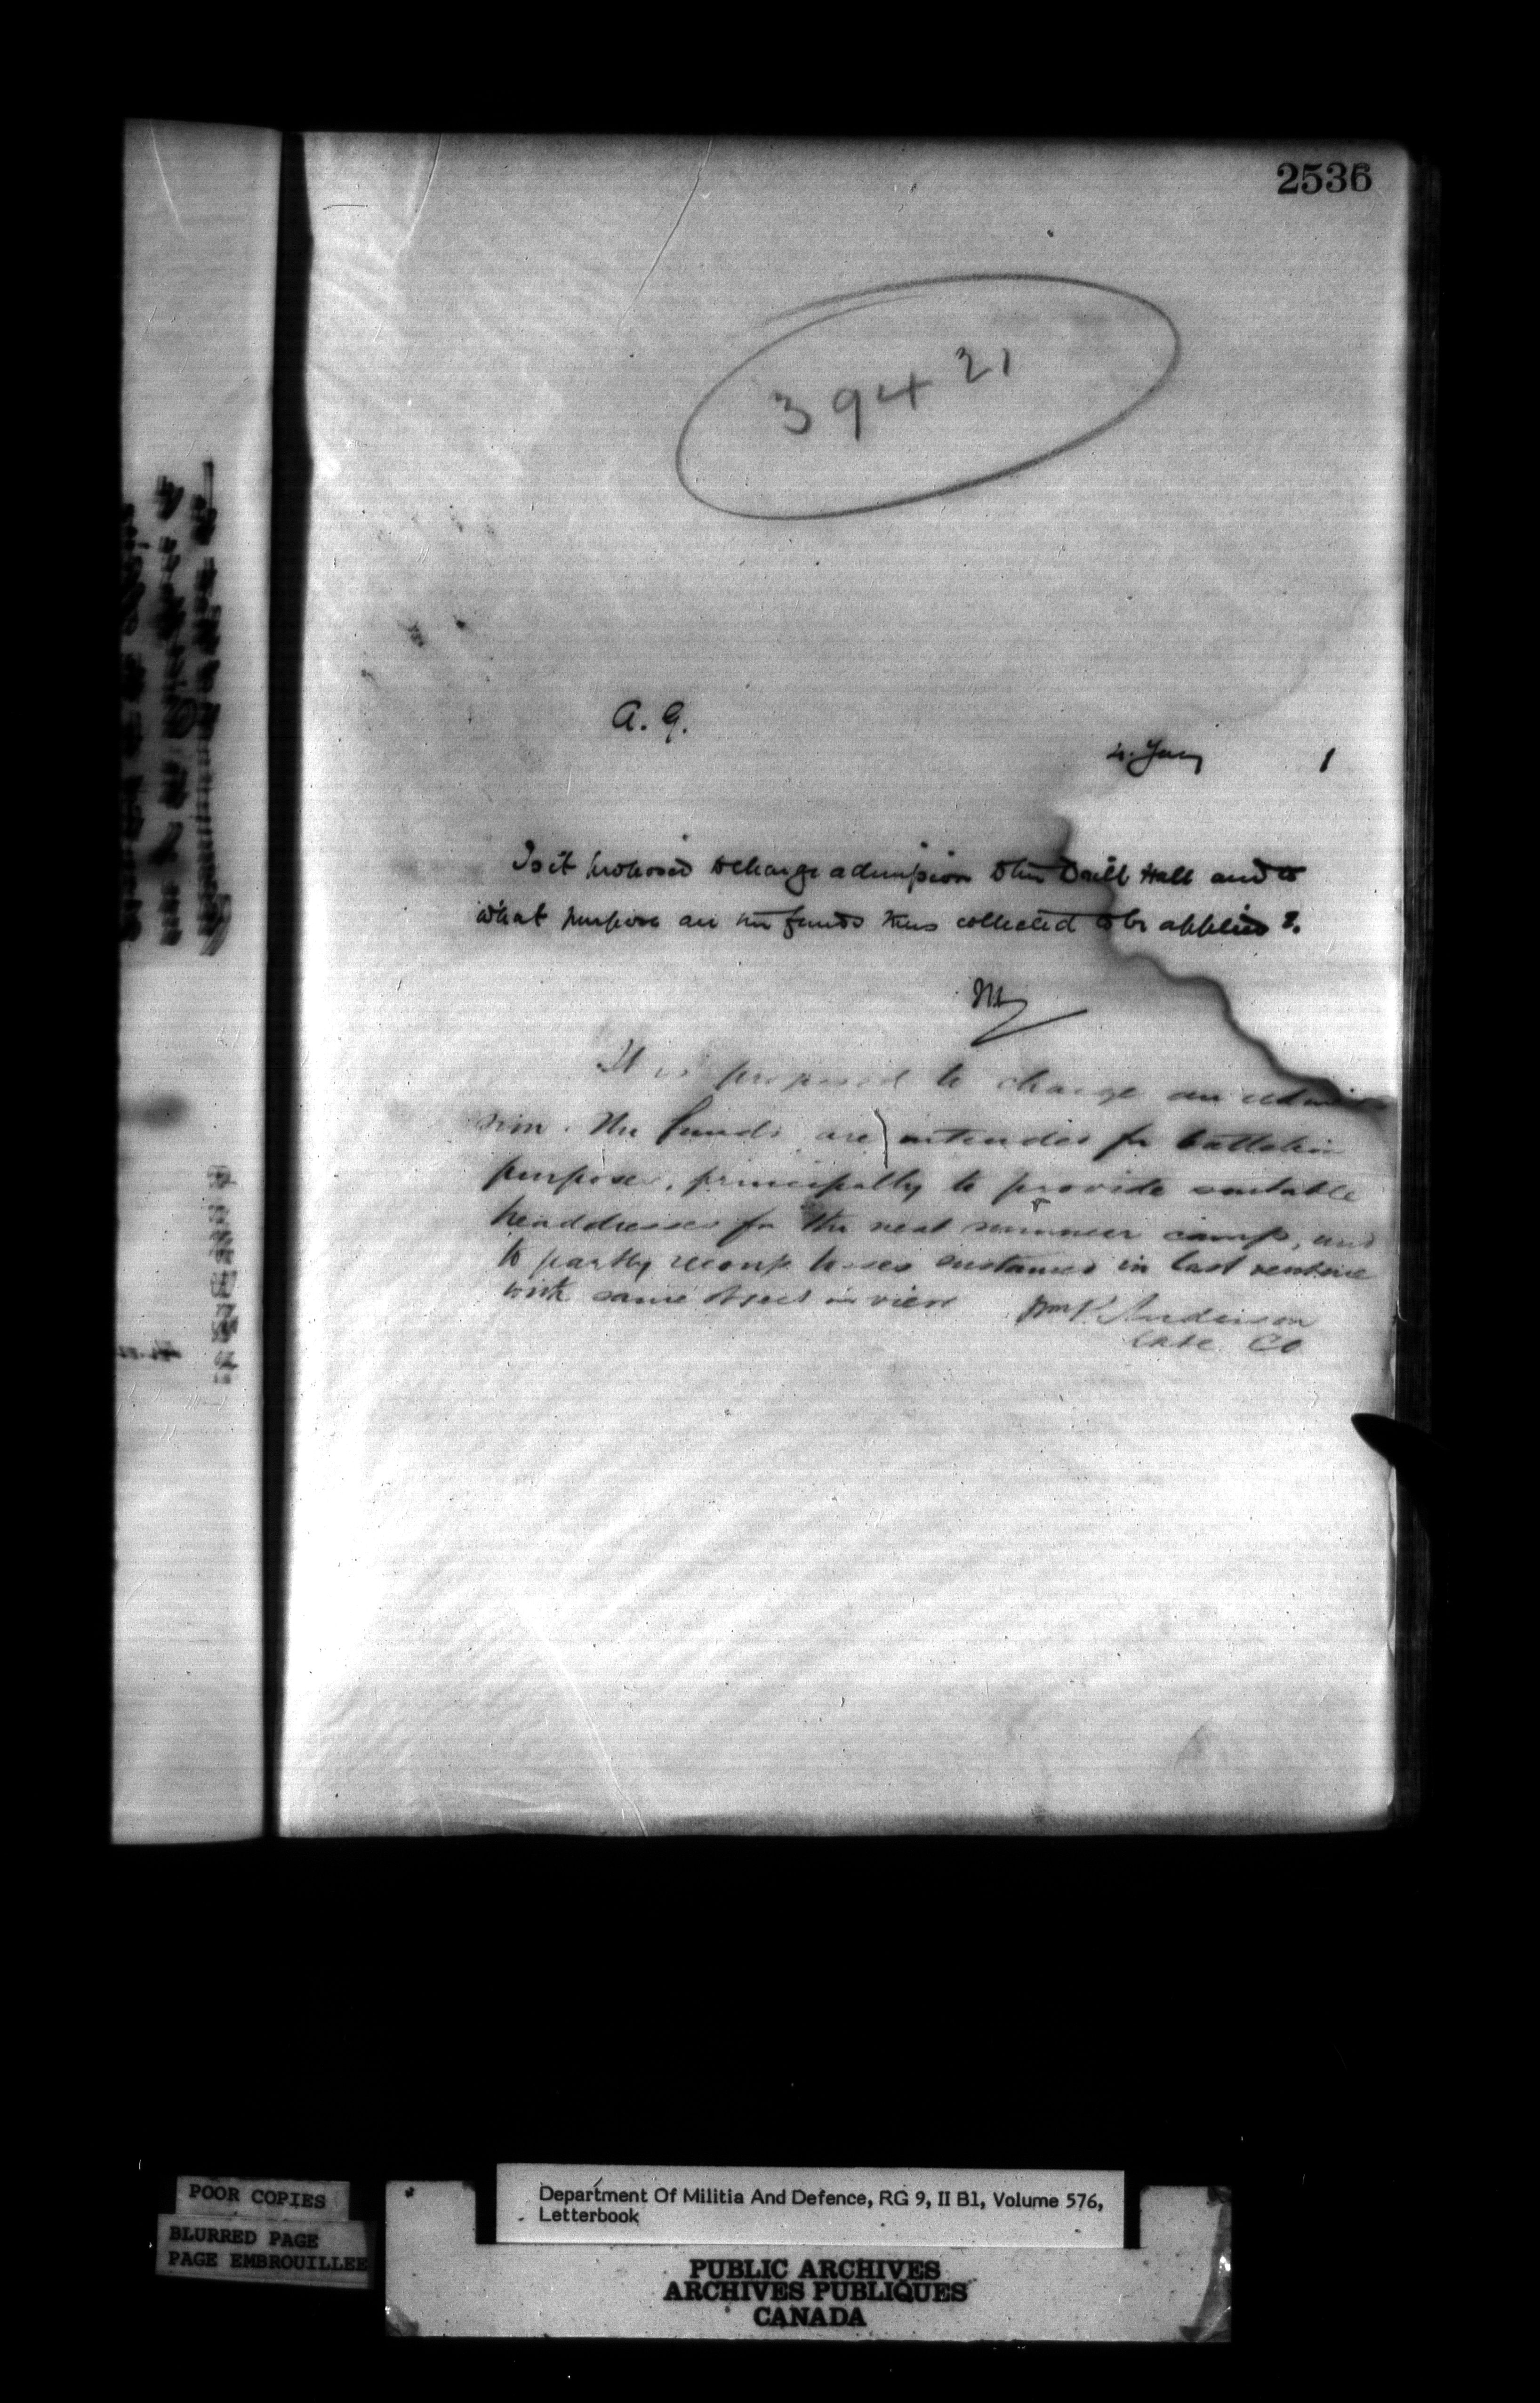 2536
39421
A. G.
Jany 1
Is it proposed to charge admission to the Drill Hall and to
what purpose are the funds thus collected to be applied?
It is proposed to charge an admis
sion. The funds are intended for battalion
purposes, principally to provide suitable
headdresses for the next summer camp, and
to partly recoup losses sustained in last venture
with same object in view Wm P. Anderson
Lt Col. CO
POOR COPIES
BLURRED PAGE
PAGE EMBROUILLEE
Department Of Militia And Defence, RG 9, II B1, Volume 576,
Letterbook
PUBLIC ARCHIVES
ARCHIVES PUBLIQUES
CANADA